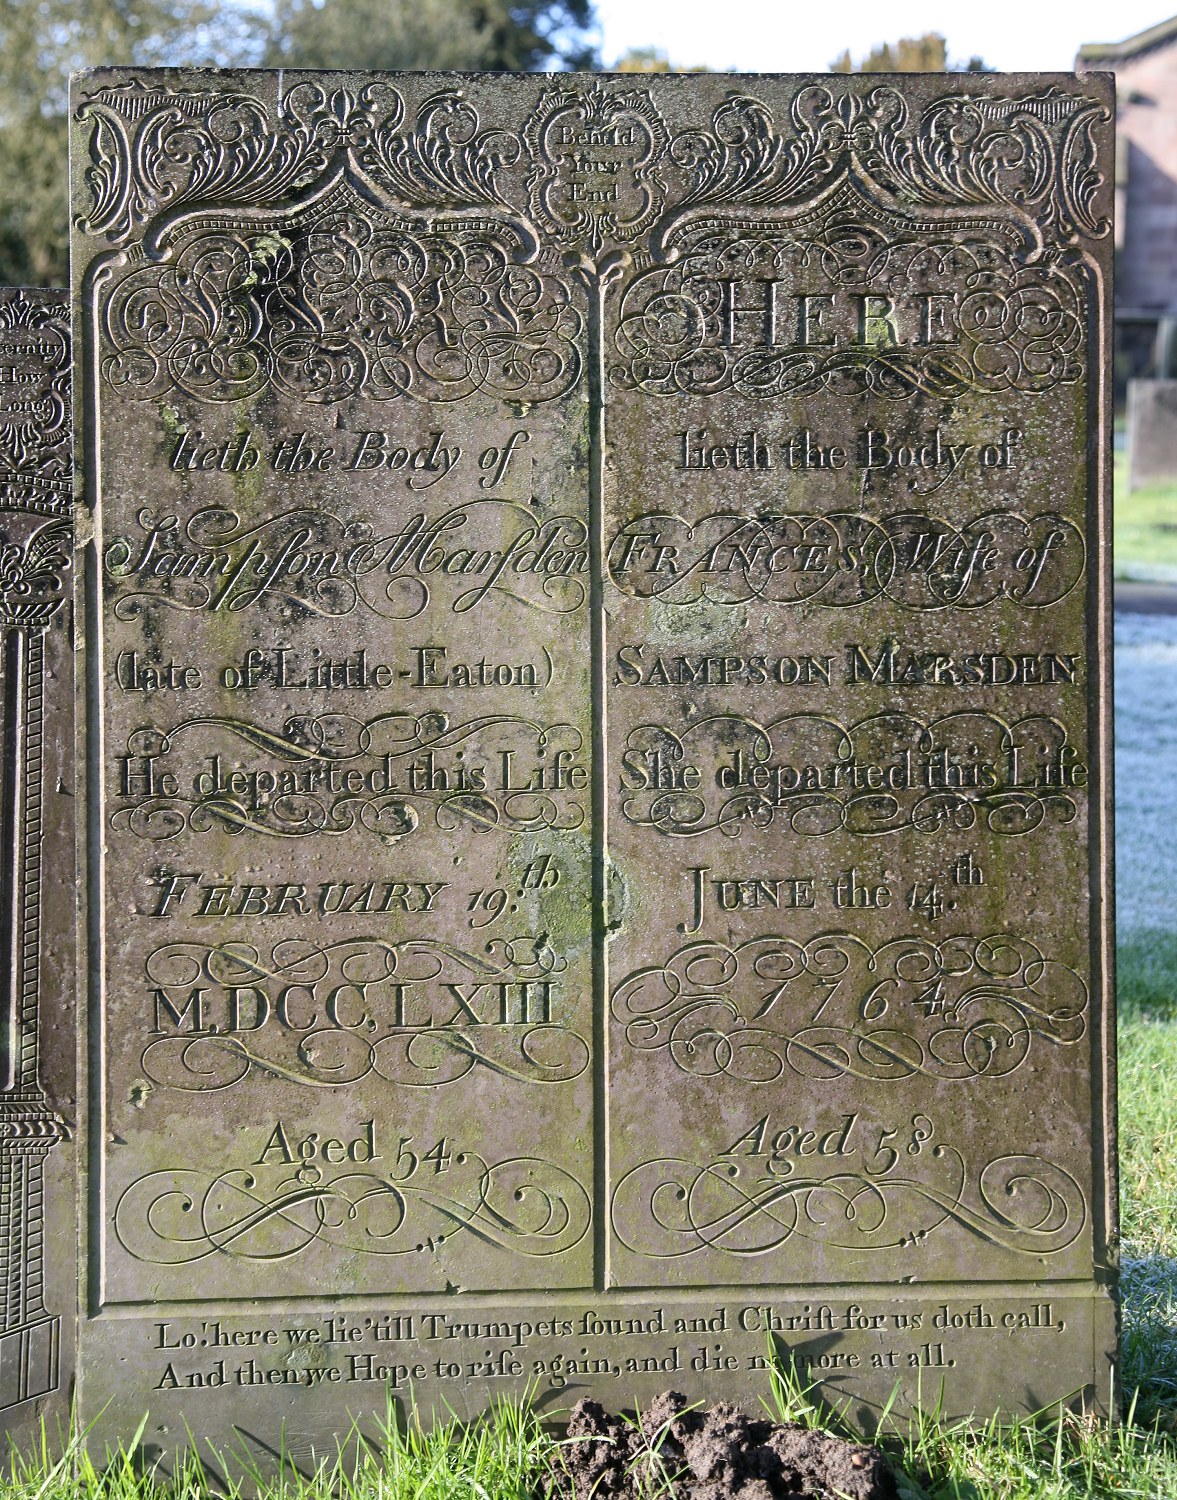 Behold
Your
End
HERE
lieth the Body of
Sampſon Marſden
(late of Little-Eaton)
He departed this Life
FEBRUARY 19.th
M,DCC,LXIII
Aged 54.
HERE
lieth the Body of
FRANCES, Wife of
SAMPSON MARSDEN
She departed this Life
JUNE the 14.th
1764.
Aged 58
Lo! here we lie 'till Trumpets ſound and Chriſt for us doth call,
And then we Hope to riſe again, and die no more at all.
How
Long